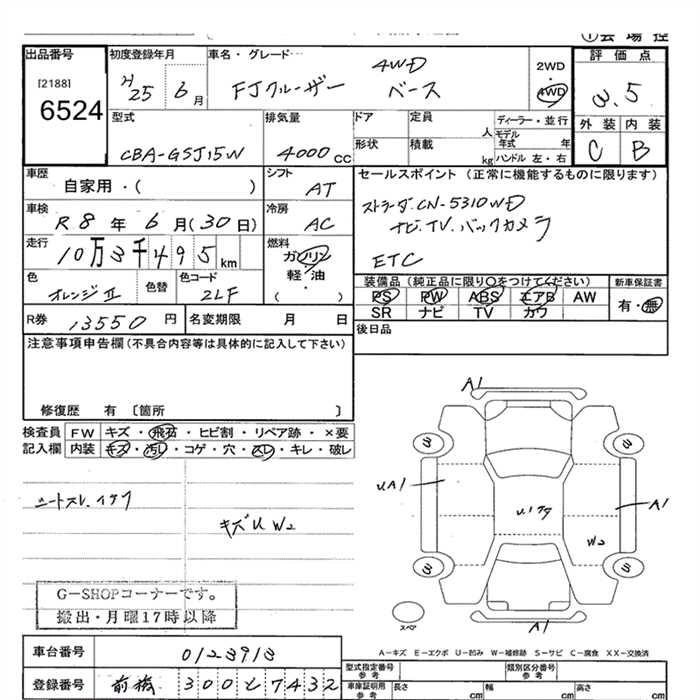 ①会場控
出品番号
[2188]
6524
初度登録年月
H25年 6月
車名・グレード
4WD
FJクルーザー ベース
2WD
・
4WD
評価点
3.5
外装 内装
C B
型式
CBA-GSJ15W
排気量
4000CC
ドア
形状
定員
人
積載
kg
ディーラー・並行
モデル年式 年
ハンドル 左・右
車歴
自家用・( )
シフト
AT
セールスポイント (正常に機能するものに限ります)
ストラーダ.CN-5310WD
ナビ.TV.バックカメラ
ETC
車検
R8年6月(30日)
冷房
AC
走行
10万3千495km
燃料
ガソリン
軽・油
( ・ )
色
オレンジⅡ
色替
色コード
2LF
装備品 (純正品に限り○をつけてください)
PS PW ABS エアB AW
SR ナビ TV カワ
新車保証書
有・無
R券
13550円
名変期限 月 日
後日品
注意事項申告欄(不具合内容等は具体的に記入して下さい)
修復歴 有 〔箇所 〕
検査員
記入欄
FW キズ・飛石・ヒビ割・リペア跡・×要
内装 キズ・汚レ・コゲ・穴・スレ・キレ・破レ
シートスレ.イタワ
キズU W2
G-SHOPコーナーです。
搬出・月曜17時以降
A1
3
3
UA1
A1
W2
3
3
スペア
A1
A-キズ E-エクボ U-凹み W-補修跡 S-サビ C-腐食 XX-交換済
車台番号
0123913
登録番号
前橋 300 と 7432
型式指定番号
参考
類別区分番号
参考
車庫証明用
参考
長さ cm 幅 cm 高さ cm